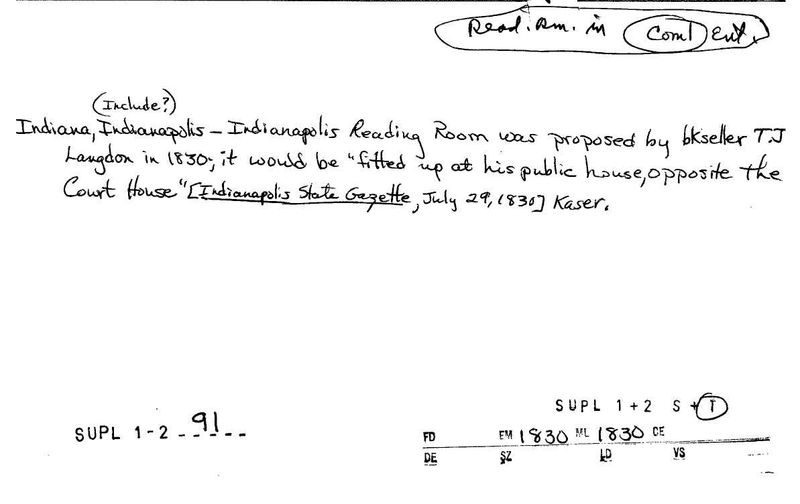 Read. Rm. in Coml Ent.
(Include?)
Indiana, Indianapolis - Indianapolis Reading Room was proposed by bkseller TJ
Langdon in 1830; it would be "fitted up at his public house, opposite the
Court House" [Indianapolis State Gazette, July 29, 1830] Kaser.
SUPL 1+2 S+T
SUPL 1-2 91
FD EM 1830 ML 1830 CE
DE SZ LD VS